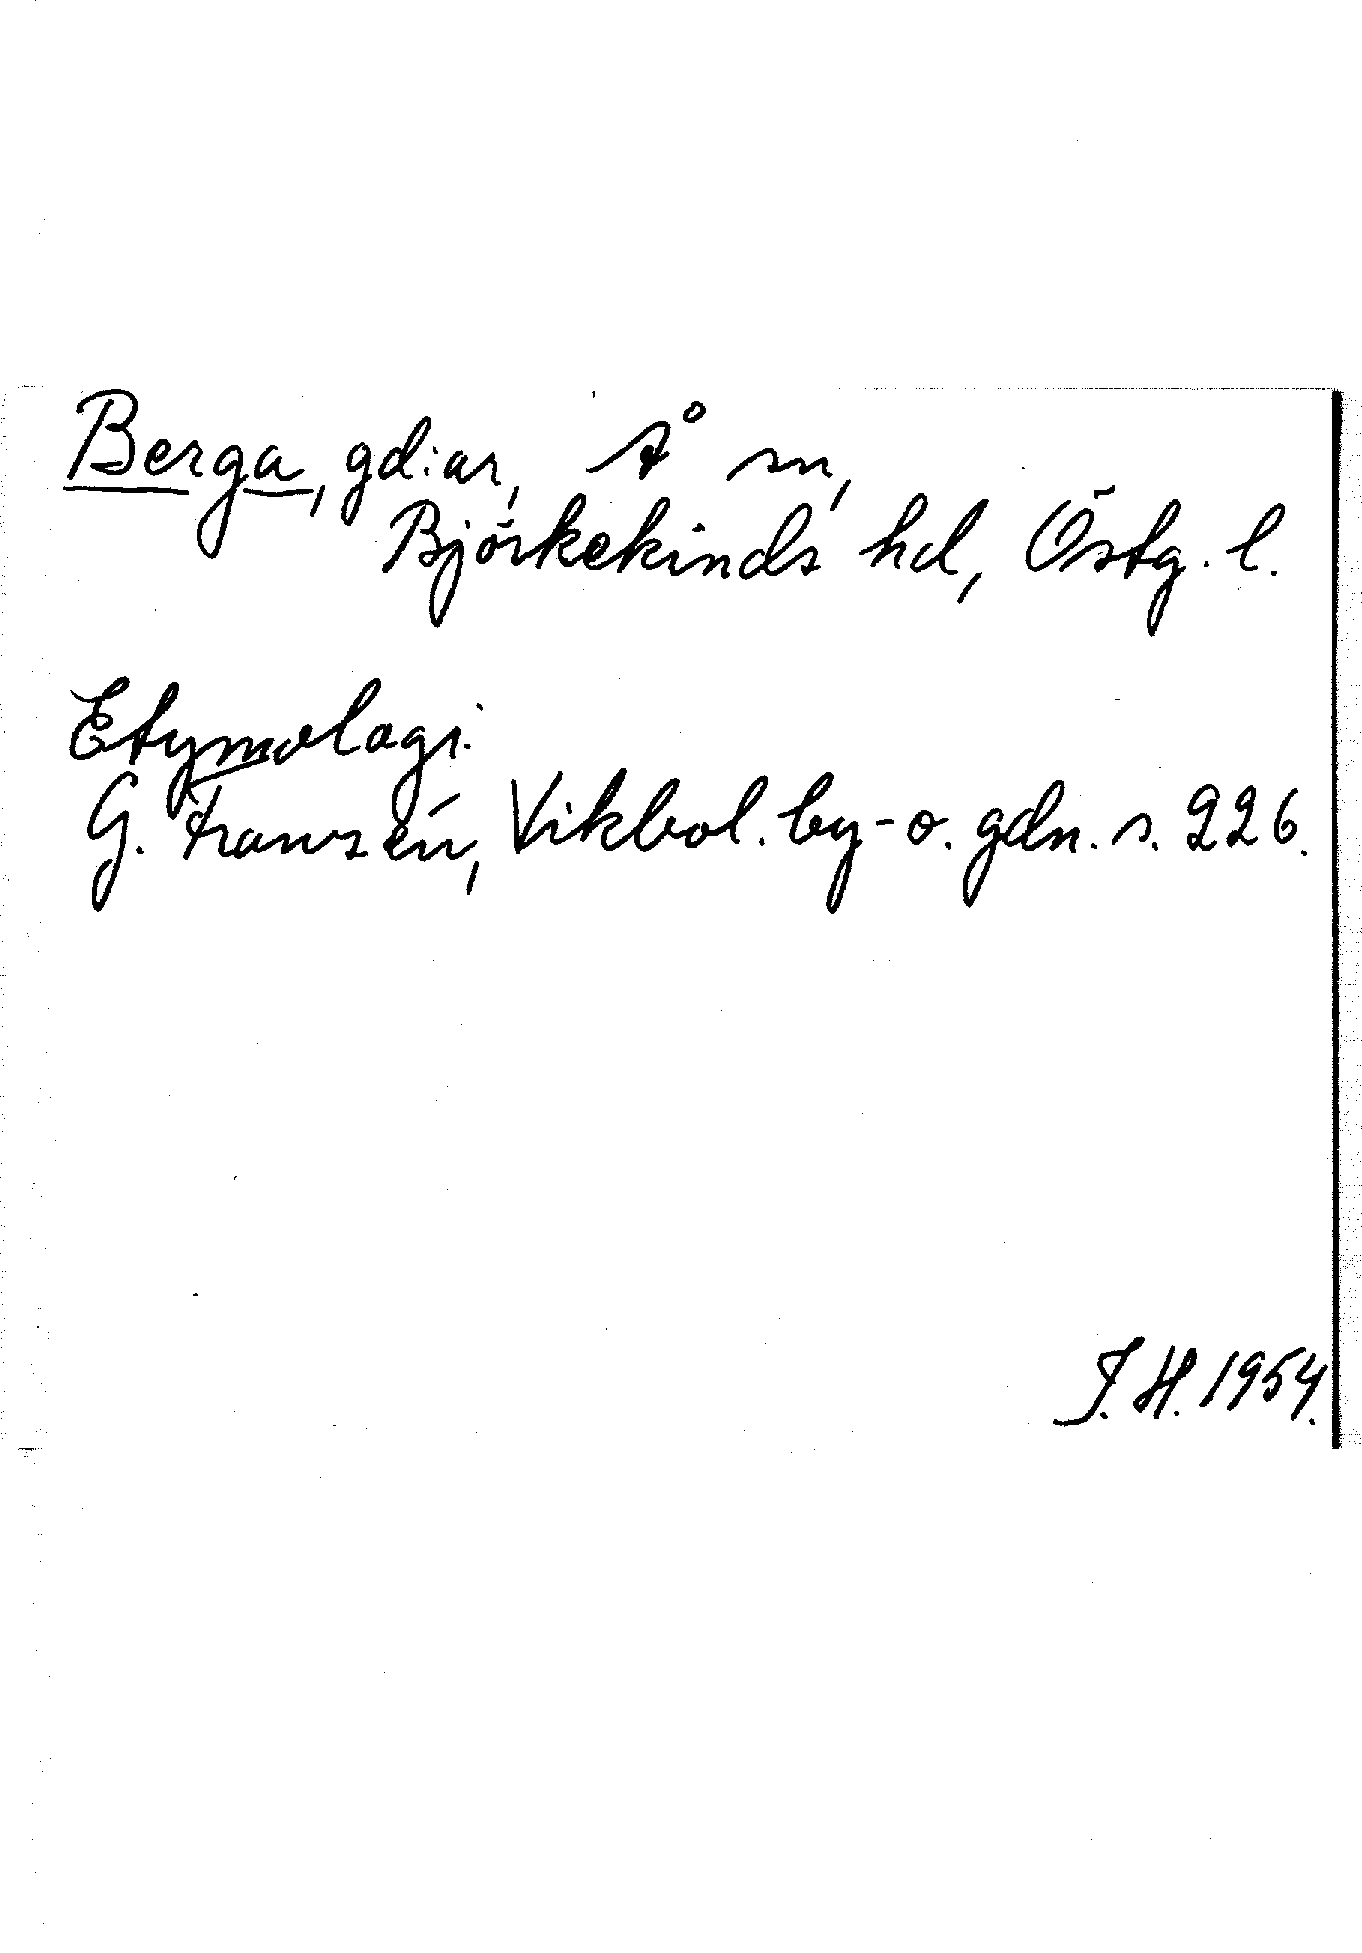 Berga, gd:ar, Å sn,
Björkekinds hd, Östg. l.
Etymologi:
G. Franzén, Vikbol. by- o. gdn. s. 226.
I. H. 1954.